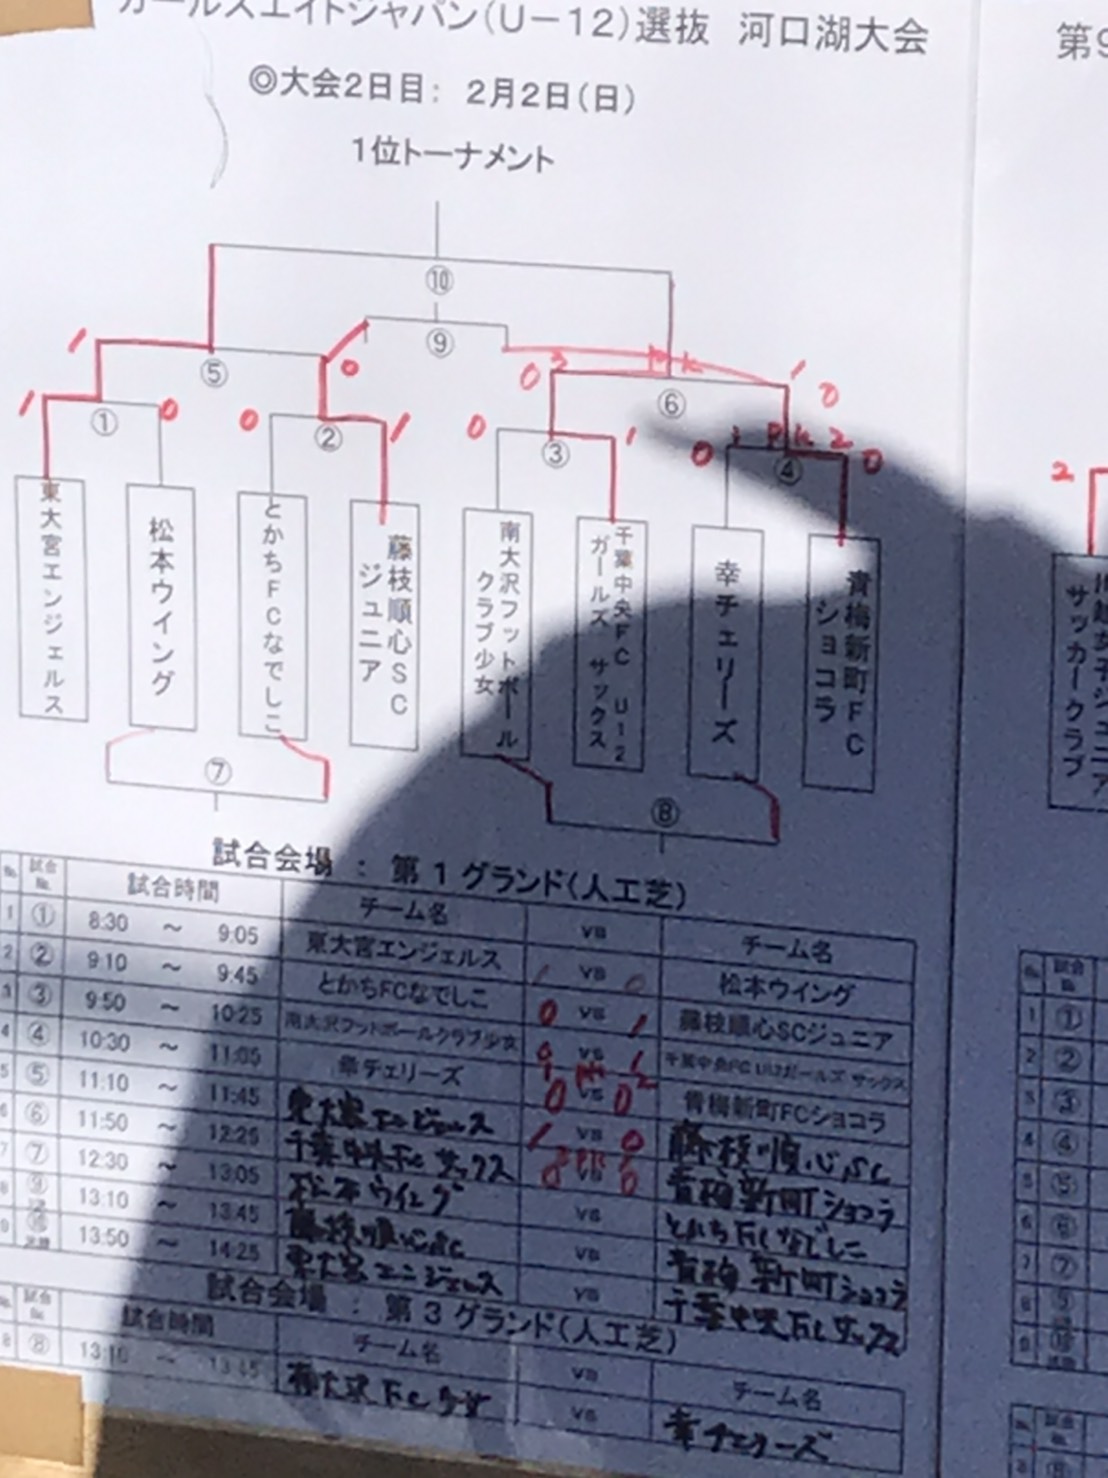 ガールズエイトジャパン(U-12)選抜 河口湖大会
◎大会2日目: 2月2日(日)
1位トーナメント
⑩
⑨
1 ⑤ 0
0 3 PK 1 0
⑥
1 ① 0
0 ② 1
0 ③ 1
0 1 PK 2 0
④
東大宮エンジェルス
松本ウイング
とかちFCなでしこ
藤枝順心SC
ジュニア
南大沢フットボール
クラブ少女
千葉中央FC U12
ガールズ サックス
幸チェリーズ
青梅新町FC
ショコラ
⑦
⑧
試合会場 : 第1グランド(人工芝)
No. 試合No. 試合時間 チーム名 vs チーム名
1 ① 8:30 ~ 9:05 東大宮エンジェルス 1 vs 0 松本ウイング
2 ② 9:10 ~ 9:45 とかちFCなでしこ 0 vs 1 藤枝順心SCジュニア
3 ③ 9:50 ~ 10:25 南大沢フットボールクラブ少女 vs 千葉中央FC U12ガールズ サックス
4 ④ 10:30 ~ 11:05 幸チェリーズ 0 vs 0 青梅新町FCショコラ
5 ⑤ 11:10 ~ 11:45 東大宮エンジェルス 1 vs 0 藤枝順心SC
6 ⑥ 11:50 ~ 12:25 千葉中央FCサックス 0 vs 0 青梅新町ショコラ
7 ⑦ 12:30 ~ 13:05 松本ウイング vs とかちFCなでしこ
8 ⑨ 13:10 ~ 13:45 藤枝順心SC vs 青梅新町ショコラ
9 ⑩ 13:50 ~ 14:25 東大宮エンジェルス vs 千葉中央FCサックス
試合会場 : 第3グランド(人工芝)
No. 試合No. 試合時間 チーム名 vs チーム名
8 ⑧ 13:10 ~ 13:45 南大沢FC少女 vs 幸チェリーズ
第9
2
川越女子ジュニア
サッカークラブ
No. 試合No.
1 ①
2 ②
3 ③
4 ④
5 ⑤
6 ⑥
7 ⑦